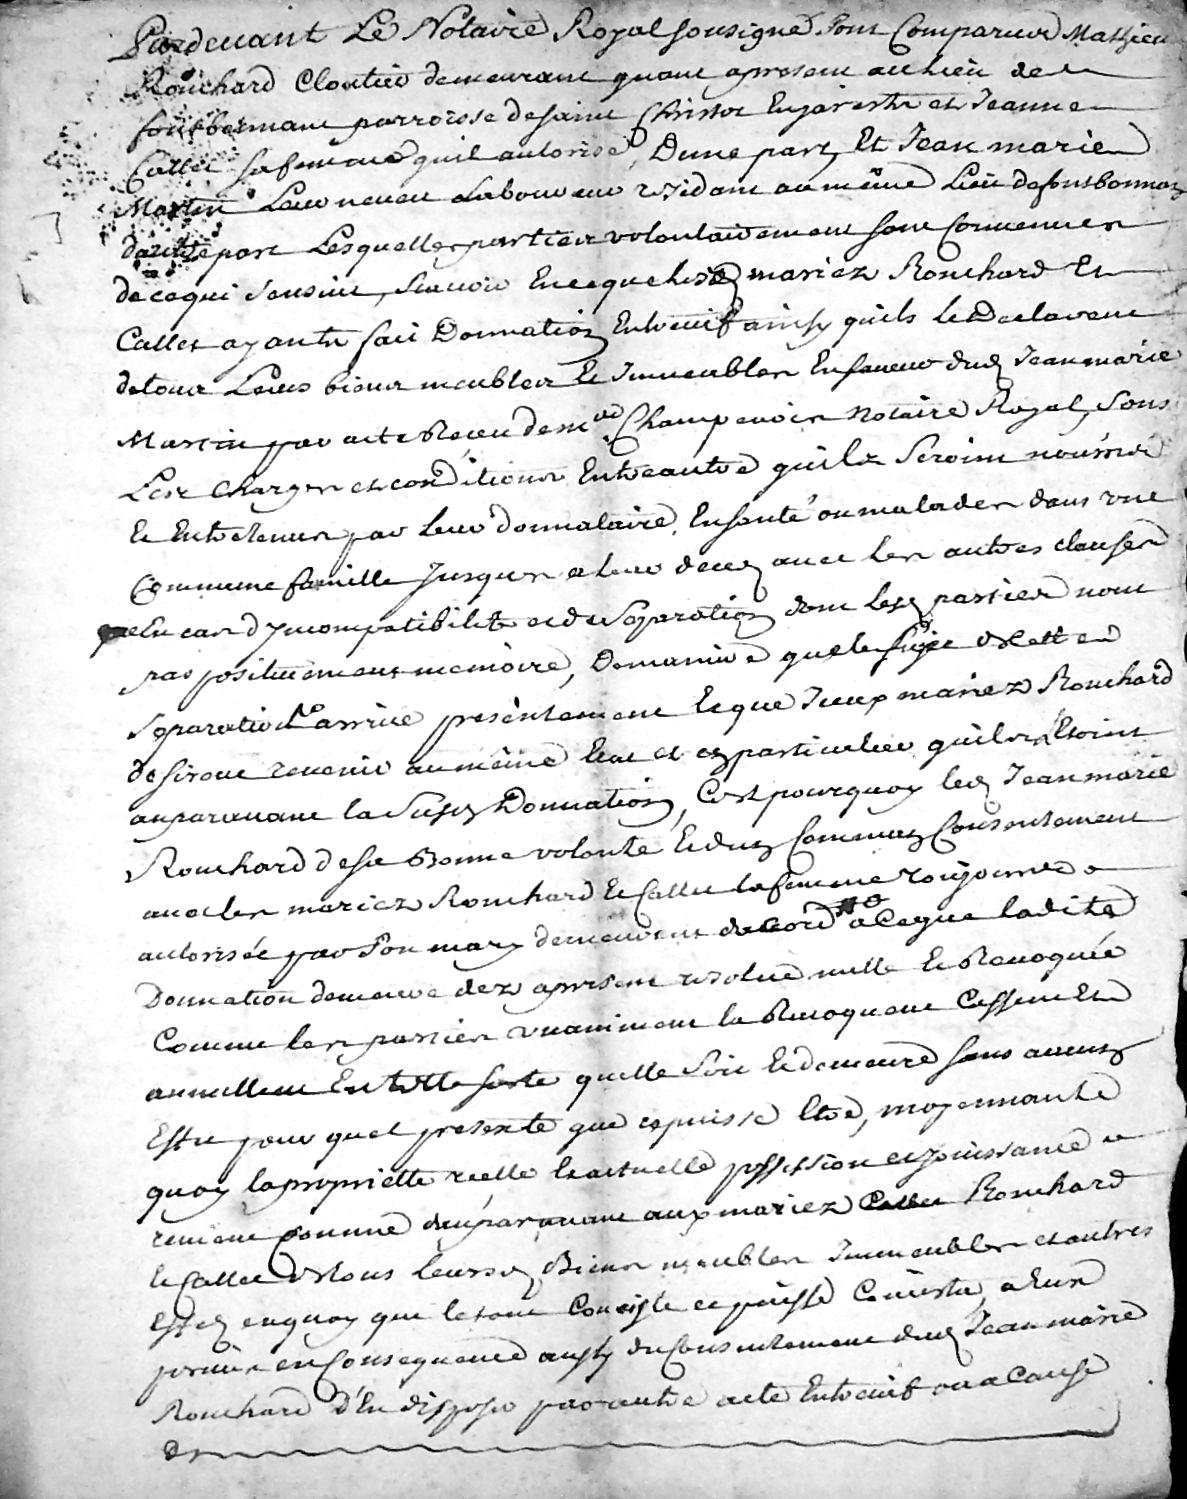 Pardevant Le Notaire Royal sousigné sont Comparus Mathieu
Rouchard Cloutier demeurant quant apresent au Lieu de
fontbonnant parroisse de saint Christo En jarestz et Jeanne
Callet sa femme qu'il autorise, D'une part, Et Jean marie
Martin Leur neveu Laboureur residant au même Lieu de fontbonnant
d'autre part Lesquelles parties volontairement sont Convenues
de ce qui s'ensuit, scavoir En ce que lesd mariez Rouchard Et
Callet ayants fait Donnation Entrevifs ainsy quils le Declarent
de tous Leurs biens meubles Et Immeubles En faveur dud Jean marie
Martin par acte Recu de me Champenois Notaire Royal, Sous
Les Charges et conditions Entre autre quils Seroint nourris
Et Entretenus par Leur donnataire, En santé ou malades dans une
Commune famille Jusques a leur deced avec les autres clauses
En cas d'Incompatibilité et de Separation dont lesd parties n'ont
pas positivement mémoire, De maniere que le sujet de cette
separation arrive presentement Et que Iceux mariez Rouchard
desirent revenir au même Etat et en particulier qu'ils Etoint
auparavant la Susd Donnation, C'est pourquoy led Jean marie
Rouchard de sa Bonne volonté Et d'un Commun Consentement
avec les mariez Rouchard Et Callet la femme toujours
autorisée par son mary demeurent d'accord a ce que ladite
Donnation demeure dez apresent resolue nulle Et Revoquée
Comme les parties unanimement la Revoquent Cassent Et
annullent En telle sorte qu'elle soit Et demeure sans aucun
Effet pour quel pretexte que ce puisse Etre, moyennant
quoy la proprietté reelle Et actuelle possession et jouissance
revient Comme d'auparavant aux mariez Rouchard
Et Callet de tous leursd Biens meubles Immeubles et autres
Effed en quoy que le tout Consiste et puisse Consister, a Eux
permis en Consequence aussy du Consentement dud Jean marie
Rouchard D'En disposer par autre acte Entrevifs ou a Cause
de